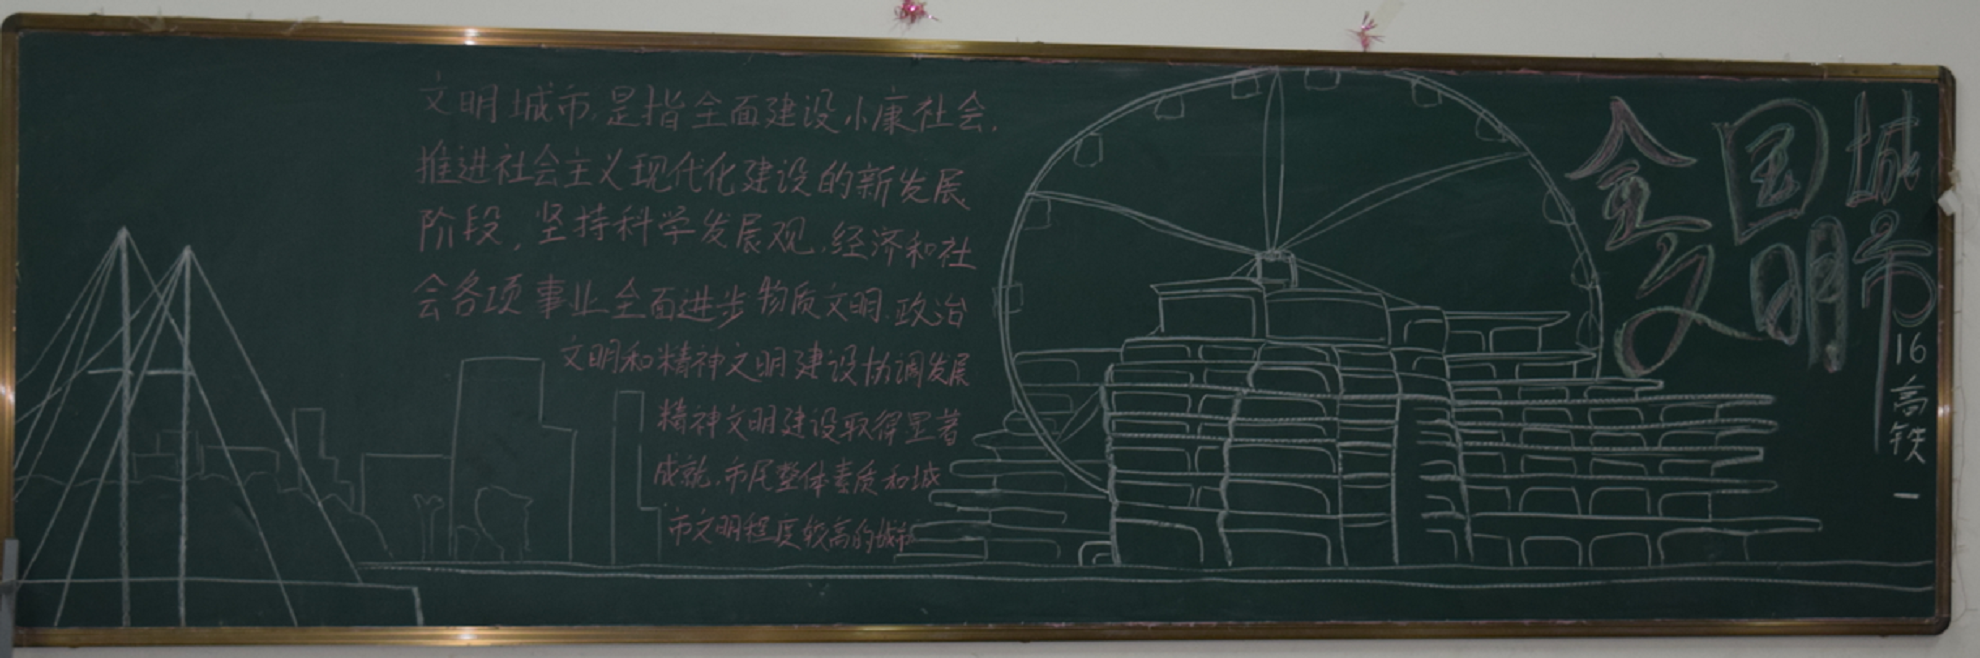 文明城市,是指全面建设小康社会,
推进社会主义现代化建设的新发展
阶段,坚持科学发展观,经济和社
会各项事业全面进步物质文明.政治
文明和精神文明建设协调发展
精神文明建设取得显著
成就,市民整体素质和城
市文明程度较高的城市
全国
文明
城市
16高铁一